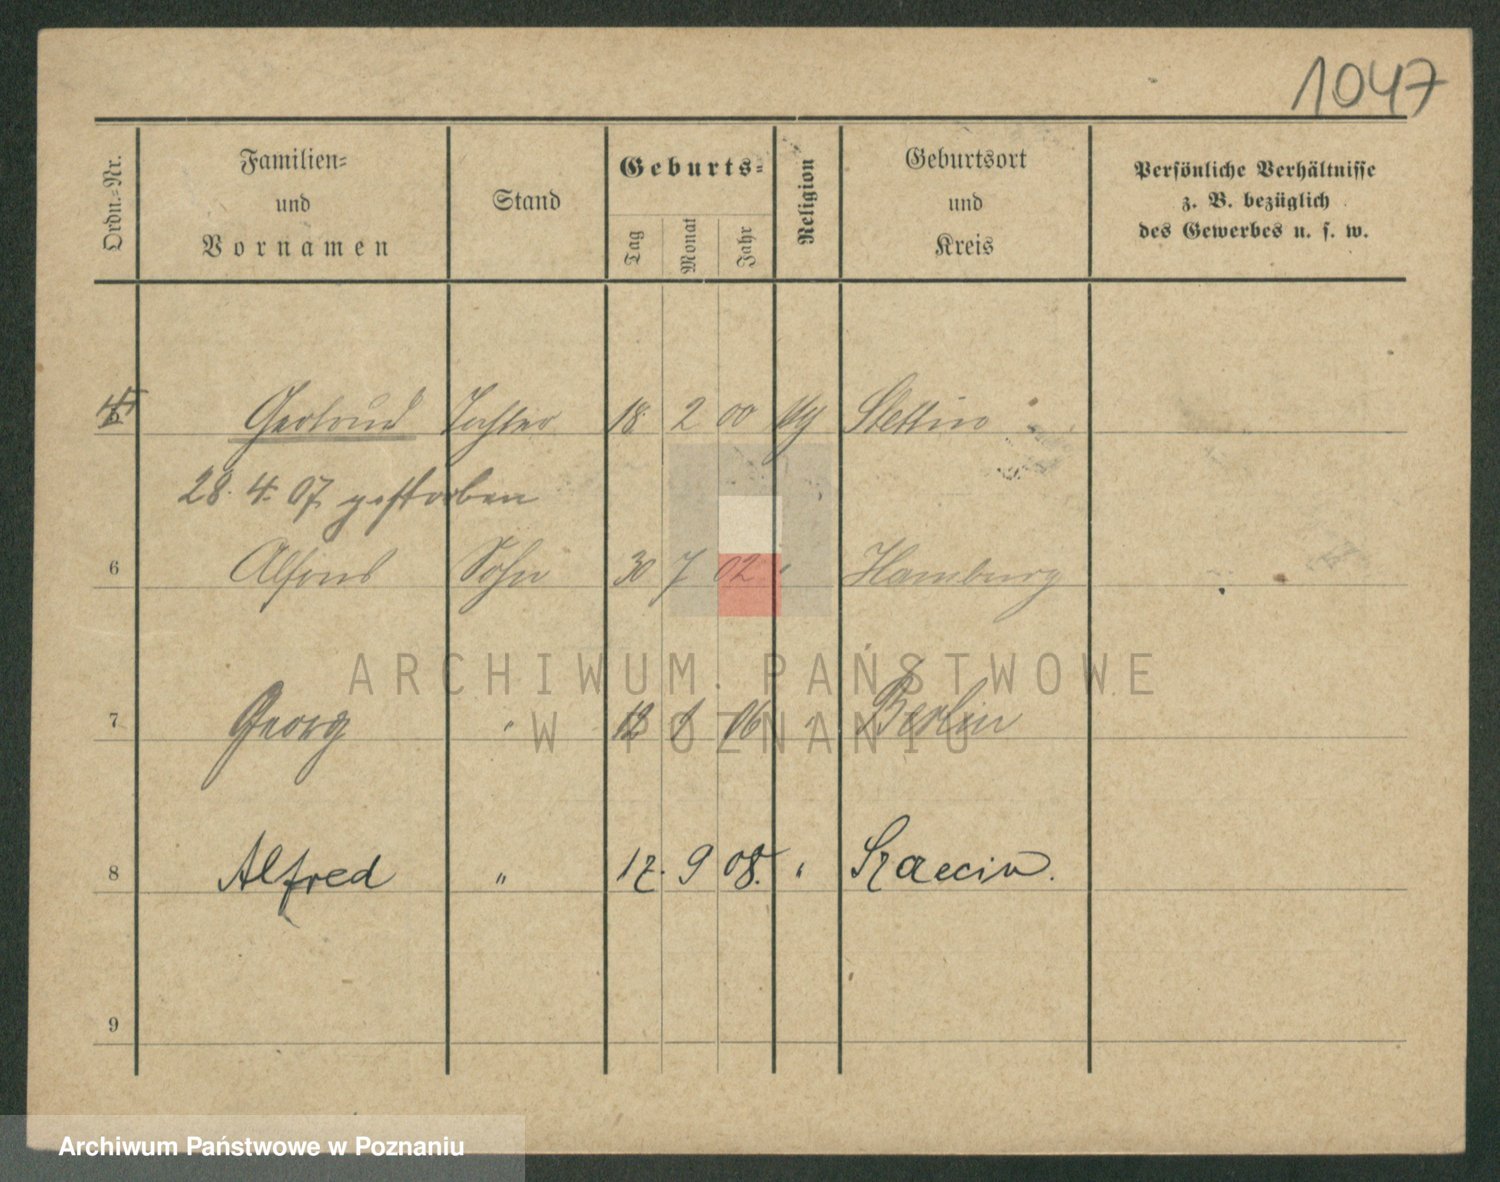 1047
Ordn.-Nr. Familien- und Vornamen Stand Geburts- Tag Monat Jahr Religion Geburtsort und Kreis Persönliche Verhältnisse z. B. bezüglich des Gewerbes u. s. w.
5 Gertrud Tochter 18 2 00 Stettin
28. 4. 07 gestorben
6 Alfons Sohn 30 7 02 " Hamburg
ARCHIWUM PAŃSTWOWE
7 Georg " 12 06 " Berlin
W POZNANIU
8 Alfred " 9 08. "
9
Archiwum Państwowe w Poznaniu